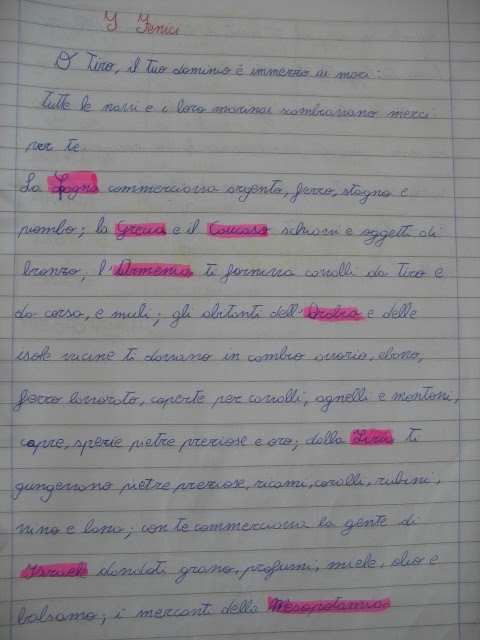 I Fenici
O Tiro, il tuo dominio è immerso ai mari:
tutte le navi e i loro marinai scambiavano merci
per te.
La Spagna commerciava argento, ferro, stagno e
piombo; la Grecia e il Caucaso schiavi e oggetti di
bronzo; l'Armenia ti forniva cavalli da tiro e
da corsa, e muli; gli abitanti dell'Arabia e delle
isole vicine ti davano in cambio avorio, ebano,
ferro lavorato, coperte per cavalli, agnelli e montoni,
capre, spezie pietre preziose e oro; dalla Siria ti
giungevano pietre preziose, ricami, coralli, rubini,
vino e lana; con te commerciava la gente di
Israele dandoti grano, profumi, miele, olio e
balsamo; i mercanti della Mesopotamia